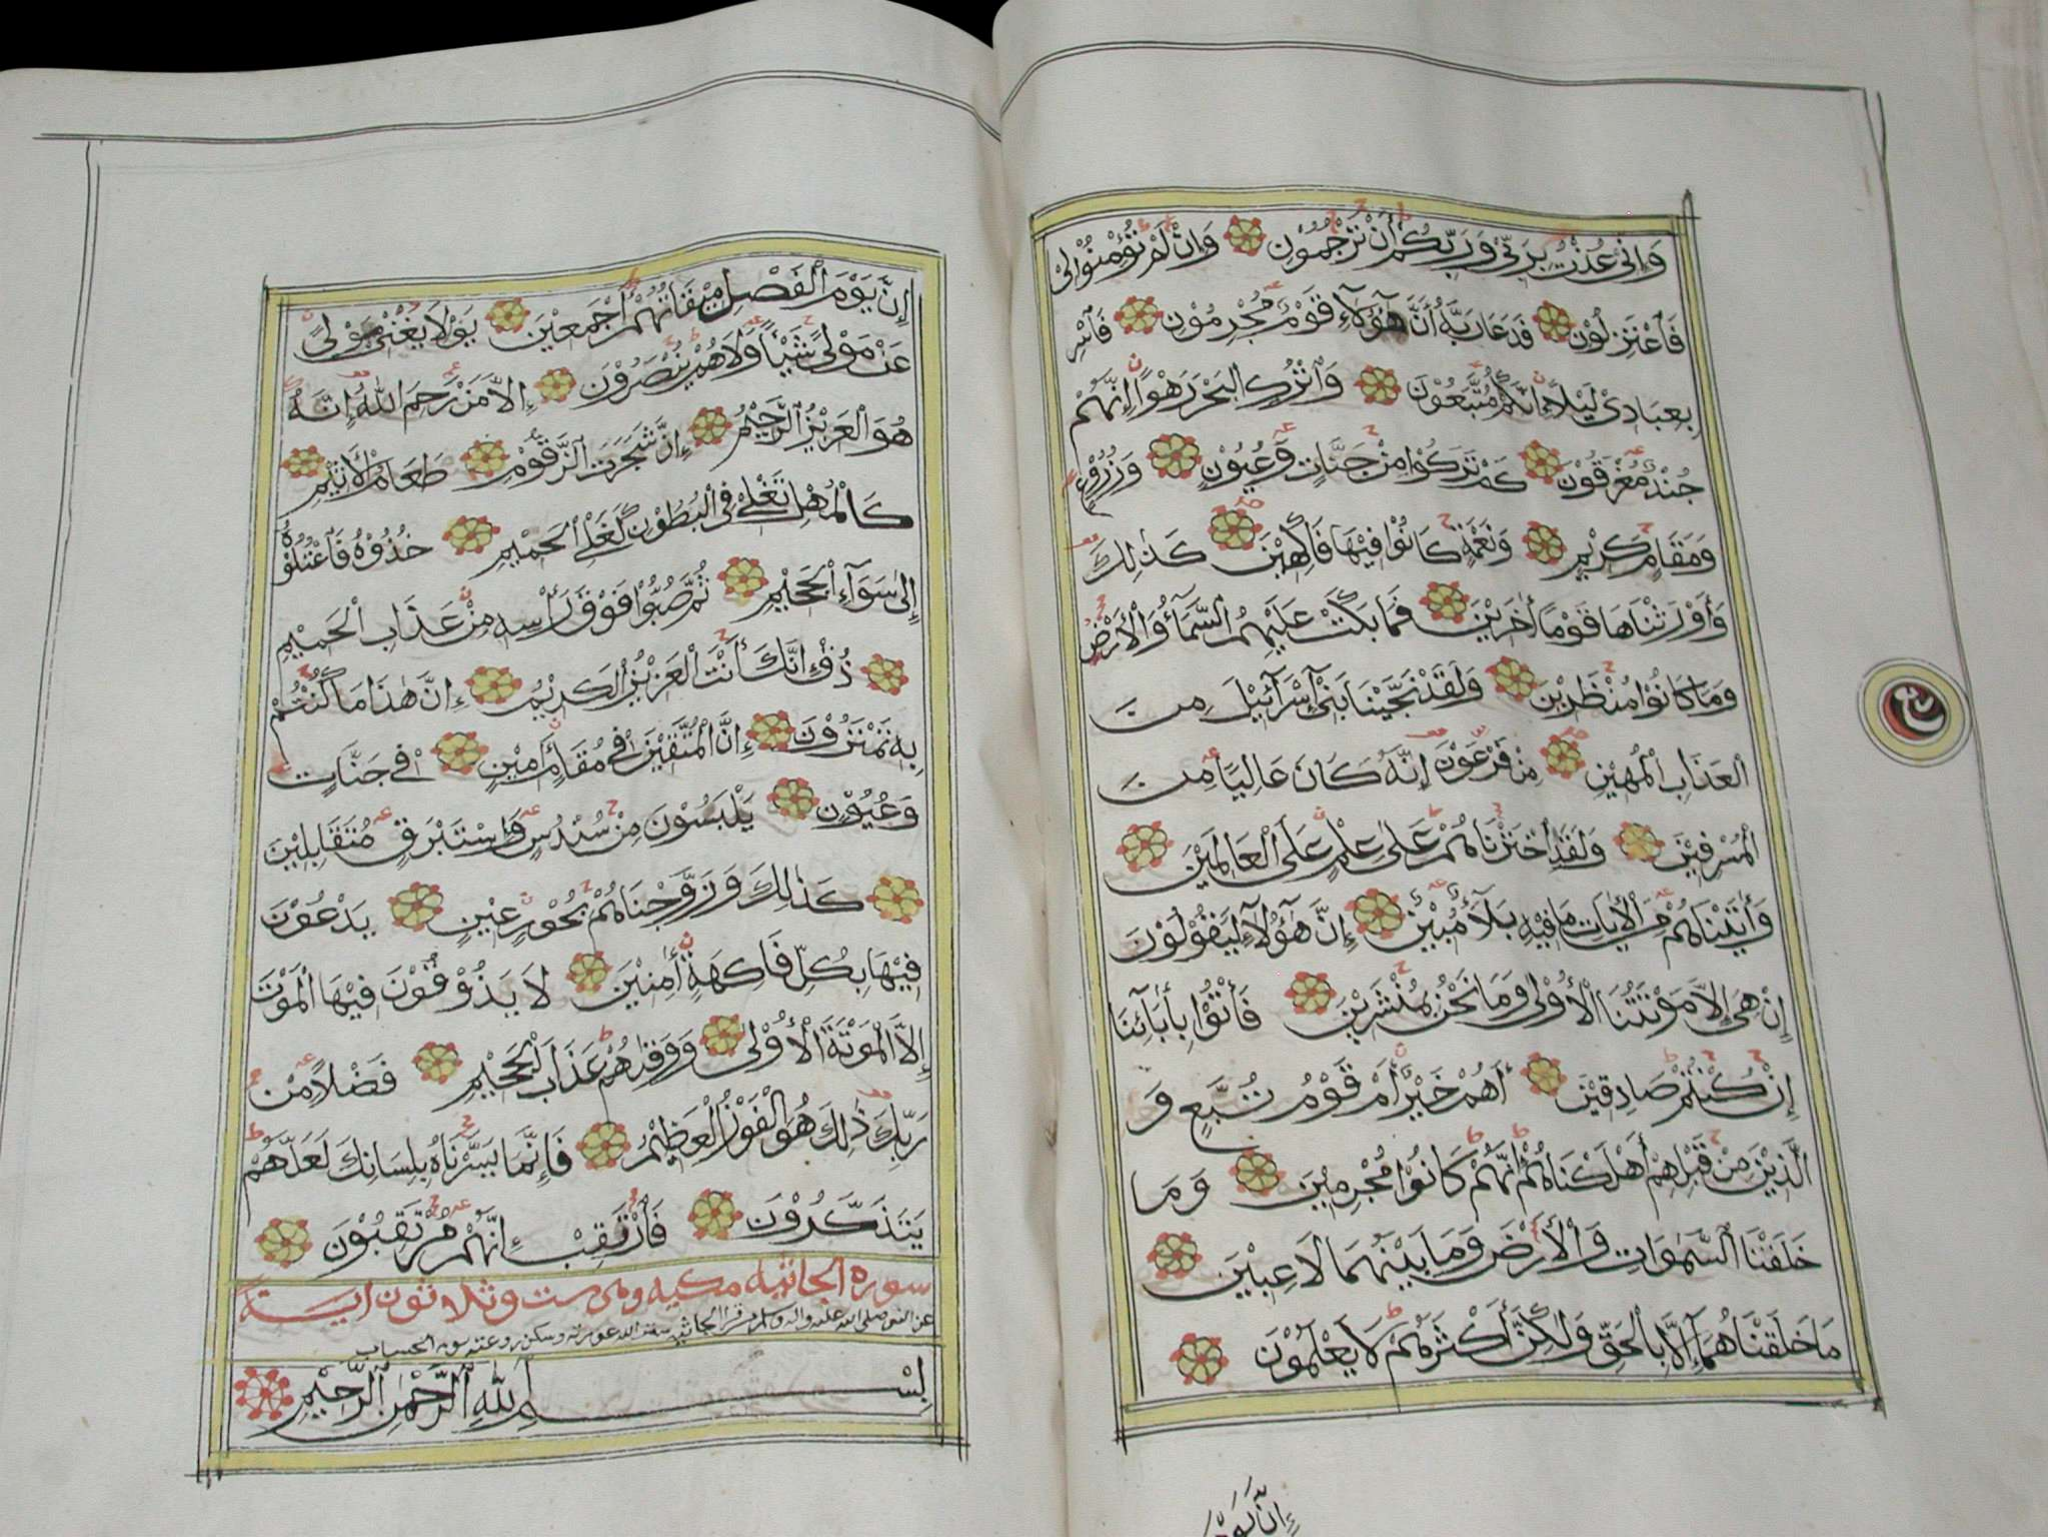 وَإِنِّي عُذْتُ بِرَبِّي وَرَبِّكُمْ أَنْ تَرْجُمُوْنِ وَإِنْ لَمْ تُؤْمِنُوْا لِيْ
فَاعْتَزِلُوْنِ فَدَعَا رَبَّهُ أَنَّ هَٰٓؤُلَآءِ قَوْمٌ مُجْرِمُوْنَ فَأَسْرِ
بِعِبَادِيْ لَيْلًا إِنَّكُمْ مُتَّبَعُوْنَ وَاتْرُكِ الْبَحْرَ رَهْوًا إِنَّهُمْ
جُنْدٌ مُغْرَقُوْنَ كَمْ تَرَكُوْا مِنْ جَنَّاتٍ وَعُيُوْنٍ وَزُرُوْعٍ
وَمَقَامٍ كَرِيْمٍ وَنَعْمَةٍ كَانُوْا فِيْهَا فَاكِهِيْنَ كَذَٰلِكَ
وَأَوْرَثْنَاهَا قَوْمًا آخَرِيْنَ فَمَا بَكَتْ عَلَيْهِمُ السَّمَآءُ وَالْأَرْضُ
وَمَا كَانُوْا مُنْظَرِيْنَ وَلَقَدْ نَجَّيْنَا بَنِيْٓ إِسْرَآئِيْلَ مِنَ
الْعَذَابِ الْمُهِيْنِ مِنْ فِرْعَوْنَ إِنَّهُ كَانَ عَالِيًا مِنَ
الْمُسْرِفِيْنَ وَلَقَدِ اخْتَرْنَاهُمْ عَلَىٰ عِلْمٍ عَلَى الْعَالَمِيْنَ
وَآتَيْنَاهُمْ مِنَ الْآيَاتِ مَا فِيْهِ بَلَآءٌ مُبِيْنٌ إِنَّ هَٰٓؤُلَآءِ لَيَقُوْلُوْنَ
إِنْ هِيَ إِلَّا مَوْتَتُنَا الْأُوْلَى وَمَا نَحْنُ بِمُنْشَرِيْنَ فَأْتُوْا بِآبَآئِنَا
إِنْ كُنْتُمْ صَادِقِيْنَ أَهُمْ خَيْرٌ أَمْ قَوْمُ تُبَّعٍ وَ
الَّذِيْنَ مِنْ قَبْلِهِمْ أَهْلَكْنَاهُمْ إِنَّهُمْ كَانُوْا مُجْرِمِيْنَ وَمَا
خَلَقْنَا السَّمٰوَاتِ وَالْأَرْضَ وَمَا بَيْنَهُمَا لَاعِبِيْنَ
مَا خَلَقْنَاهُمَآ إِلَّا بِالْحَقِّ وَلَٰكِنَّ أَكْثَرَهُمْ لَا يَعْلَمُوْنَ
إِنَّ يَوْمَ
إِنَّ يَوْمَ الْفَصْلِ مِيْقَاتُهُمْ أَجْمَعِيْنَ يَوْمَ لَا يُغْنِيْ مَوْلًى
عَنْ مَوْلًى شَيْئًا وَلَا هُمْ يُنْصَرُوْنَ إِلَّا مَنْ رَحِمَ اللهُ إِنَّهُ
هُوَ الْعَزِيْزُ الرَّحِيْمُ إِنَّ شَجَرَتَ الزَّقُّوْمِ طَعَامُ الْأَثِيْمِ
كَالْمُهْلِ تَغْلِيْ فِي الْبُطُوْنِ كَغَلْيِ الْحَمِيْمِ خُذُوْهُ فَاعْتُلُوْهُ
إِلَىٰ سَوَآءِ الْجَحِيْمِ ثُمَّ صُبُّوْا فَوْقَ رَأْسِهِ مِنْ عَذَابِ الْحَمِيْمِ
ذُقْ إِنَّكَ أَنْتَ الْعَزِيْزُ الْكَرِيْمُ إِنَّ هٰذَا مَا كُنْتُمْ
بِهِ تَمْتَرُوْنَ إِنَّ الْمُتَّقِيْنَ فِيْ مُقَامٍ أَمِيْنٍ فِيْ جَنَّاتٍ
وَعُيُوْنٍ يَلْبَسُوْنَ مِنْ سُنْدُسٍ وَإِسْتَبْرَقٍ مُتَقَابِلِيْنَ
كَذَٰلِكَ وَزَوَّجْنَاهُمْ بِحُوْرٍ عِيْنٍ يَدْعُوْنَ
فِيْهَا بِكُلِّ فَاكِهَةٍ آمِنِيْنَ لَا يَذُوْقُوْنَ فِيْهَا الْمَوْتَ
إِلَّا الْمَوْتَةَ الْأُوْلَى وَوَقٰىهُمْ عَذَابَ الْجَحِيْمِ فَضْلًا مِنْ
رَبِّكَ ذَٰلِكَ هُوَ الْفَوْزُ الْعَظِيْمُ فَإِنَّمَا يَسَّرْنَاهُ بِلِسَانِكَ لَعَلَّهُمْ
يَتَذَكَّرُوْنَ فَارْتَقِبْ إِنَّهُمْ مُرْتَقِبُوْنَ
سورة الجاثية مكية وهي ست وثلاثون آية
عن النبي صلى الله عليه وآله وسلم من قرأ الجاثية ستر الله عورته وسكن روعته يوم الحساب
بِسْمِ اللهِ الرَّحْمٰنِ الرَّحِيْمِ